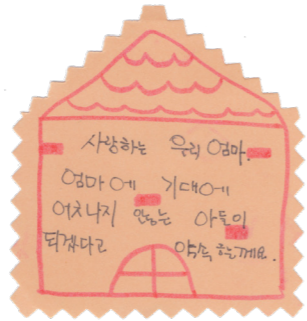 사랑하는 우리 엄마.
엄마에 기대에
어치나지 않는 아들이
되겠다고 약속 할게요.